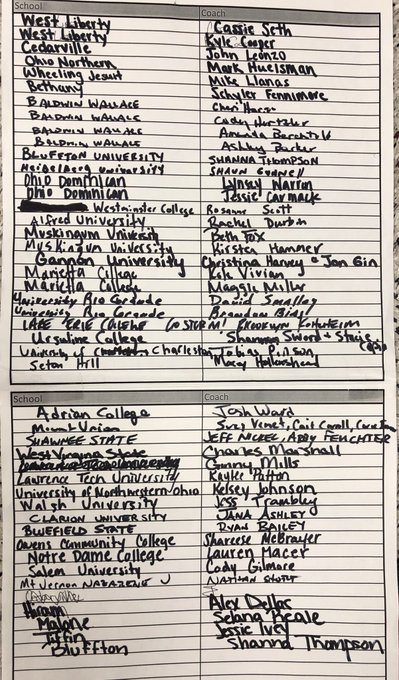 School Coach
West Liberty Cassie Seth
West Liberty Kyle Cooper
Cedarville John Leonzo
Ohio Northern Mark Huelsman
Wheeling Jesuit Mike Llanas
Bethany Schyler Fennimore
BALDWIN WALLACE Cheri
BALDWIN WALLACE Cady Hartzler
BALDWIN WALLACE Amanda
BALDWIN WALLACE Ashley Barker
BLUFFTON UNIVERSITY SHANNA THOMPSON
Heidelberg University SHAWN
Ohio Dominican Lynsey Warren
Ohio Dominican Jessie Carmack
Westminster College Rosanne Scott
Alfred University Rachel Durbin
Muskingum University Beth Fox
Muskingum University Kirsten Hammer
Gannon University Christina Harvey Jon Gin
Marietta College Kole Vivian
Marietta College Maggie Miller
University Rio Grande David Smalley
University Rio Grande Brendan
LAKE ERIE COLLEGE GO STORM! BROOKLYN
Ursuline College Shannon Sword +
University of Charleston Tobias
Seton Hill Macey
School Coach
Adrian College Josh Ward
Mount Union Suzy Venet, Cait
SHAWNEE STATE JEFF NICKEL, ABBY FEUCHTER
West Virginia State Charles Marshall
Ginny Mills
Lawrence Tech University Kaylee Patton
University of Northwestern Ohio Kelsey Johnson
Walsh University Jess Trambley
CLARION UNIVERSITY JANA ASHLEY
BLUEFIELD STATE RYAN BAILEY
Owens Community College Shareese McBrayer
Notre Dame College Lauren Macer
Salem University Cody Gilmore
Mt Vernon NAZARENE NATHAN SHORT
Cedarville
Hiram Alex Dellas
Malone Selena Beale
Tiffin Jessie Ivey
Bluffton Shanna Thompson